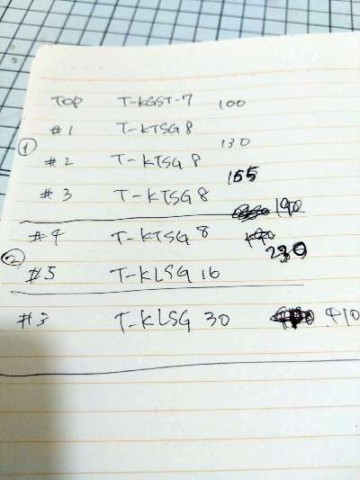 TOP T-KGST-7 100
#1 T-KTSG 8
①
130
#2 T-KTSG 8
165
#3 T-KTSG 8
190
#4 T-KTSG 8
②
230
#5 T-KLSG 16
#3 T-KLSG 30 410